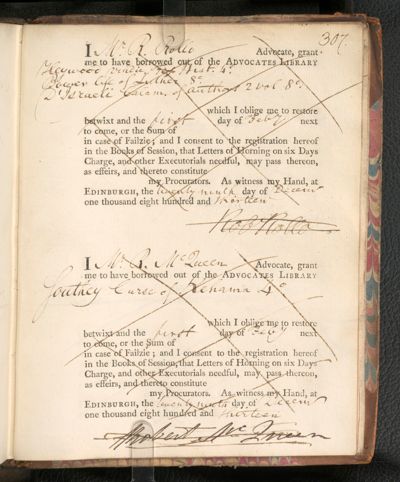 307.
I Mr R. Rollo Advocate, grant
me to have borrowed out of the ADVOCATES LIBRARY
Heywood Hist. 4o
Bower life of Luther 8o
D'Israeli Calam. of authors 2 vol 8o
which I oblige me to restore
betwixt and the first day of Feby next
to come, or the Sum of
in case of Failzie; and I consent to the registration hereof
in the Books of Session, that Letters of Horning on six Days
Charge, and other Executorials needful, may pass thereon,
as effeirs, and thereto constitute
my Procurators. As witness my Hand, at
EDINBURGH, the twenty ninth day of Decemr
one thousand eight hundred and thirteen
Rob Rollo
I Mr R. McQueen Advocate, grant
me to have borrowed out of the ADVOCATES LIBRARY
Southey Curse of Kehama 4o
which I oblige me to restore
betwixt and the first day of Feby next
to come, or the Sum of
in case of Failzie; and I consent to the registration hereof
in the Books of Session, that Letters of Horning on six Days
Charge, and other Executorials needful, may pass thereon,
as effeirs, and thereto constitute
my Procurators. As witness my Hand, at
EDINBURGH, the twenty ninth day of Decemr
one thousand eight hundred and thirteen
Robert McQueen